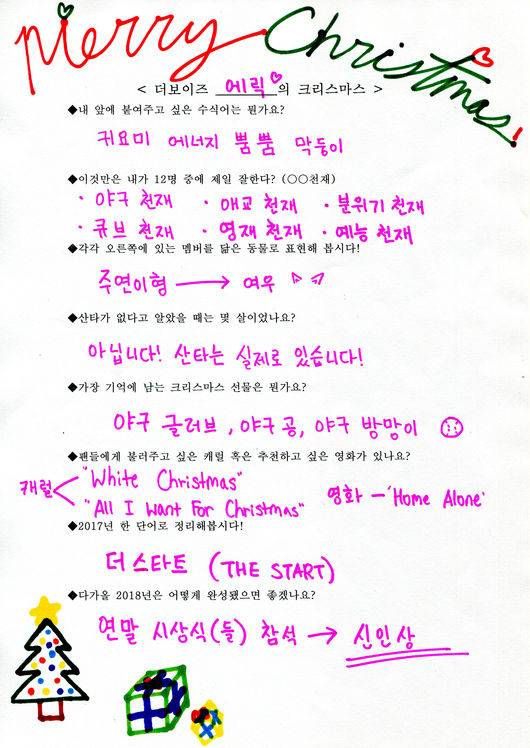 Merry Christmas!
< 더보이즈 에릭♡의 크리스마스 >
◆내 앞에 붙여주고 싶은 수식어는 뭔가요?
귀요미 에너지 뿜뿜 막둥이
◆이것만은 내가 12명 중에 제일 잘한다? (○○천재)
· 야구 천재 · 애교 천재 · 분위기 천재
· 큐브 천재 · 영재 천재 · 예능 천재
◆각각 오른쪽에 있는 멤버를 닮은 동물로 표현해 봅시다!
주연이형 → 여우
◆산타가 없다고 알았을 때는 몇 살이었나요?
아닙니다! 산타는 실제로 있습니다!
◆가장 기억에 남는 크리스마스 선물은 뭔가요?
야구 글러브, 야구 공, 야구 방망이
◆팬들에게 불러주고 싶은 캐럴 혹은 추천하고 싶은 영화가 있나요?
캐럴 "White Christmas"
"All I Want For Christmas" 영화 - 'Home Alone'
◆2017년 한 단어로 정리해봅시다!
더 스타트 (THE START)
◆다가올 2018년은 어떻게 완성됐으면 좋겠나요?
연말 시상식(들) 참석 → 신인상